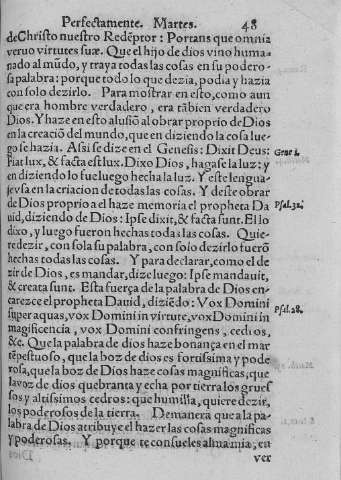 Perfectamente. Martes. 48
de Christo nuestro Redẽptor : Portans que omnia
veruo virtutes suæ. Que el hijo de dios vino huma-
nado al mũdo, y traya todas las cosas en su podero-
sa palabra: porque todo lo que dezia, podia y hazia
con solo dezirlo. Para mostrar en esto, como aun
que era hombre verdadero, era tãbien verdadero
Dios. Y haze en esto alusiõ al obrar proprio de Dios
en la creaciõ del mundo, que en diziendo la cosa lue-
go se hazia. Assi se dize en el Genesis: Dixit Deus: Gene 1.
Fiat lux, & facta est lux. Dixo Dios, hagase la luz: y
en diziendo lo fue luego hecha la luz. Y este lengua-
je vsa en la criacion de todas las cosas. Y deste obrar
de Dios proprio a el haze memoria el propheta Da Psal. 32.
uid, diziendo de Dios: Ipse dixit, & facta sunt. El lo
dixo, y luego fueron hechas todas las cosas. Quie-
re dezir, con sola su palabra, con solo dezirlo fuerõ
hechas todas las cosas. Y para declarar, como el de
zir de Dios, es mandar, dize luego: Ipse mandauit,
& creata sunt. Esta fuerça de la palabra de Dios en-
carezce el propheta Dauid, diziẽdo: Vox Domini
super aquas, vox Domini in virtute, vox Domini in Psal. 28.
magnificencia, vox Domini confringens, cedros,
&c. Que la palabra de dios haze bonança en el mar
tẽpestuoso, que la boz de dios es fortissima y pode
rosa, que la boz de Dios haze cosas magnificas, que
la voz de dios quebranta y echa por tierra los grues
sos y altissimos cedros: que humilla, quiere dezir,
los poderosos de la tierra. Demanera que a la pa-
labra de Dios atribuye el hazer las cosas magnificas
y poderosas. Y porque te consueles alma mia, en
ver